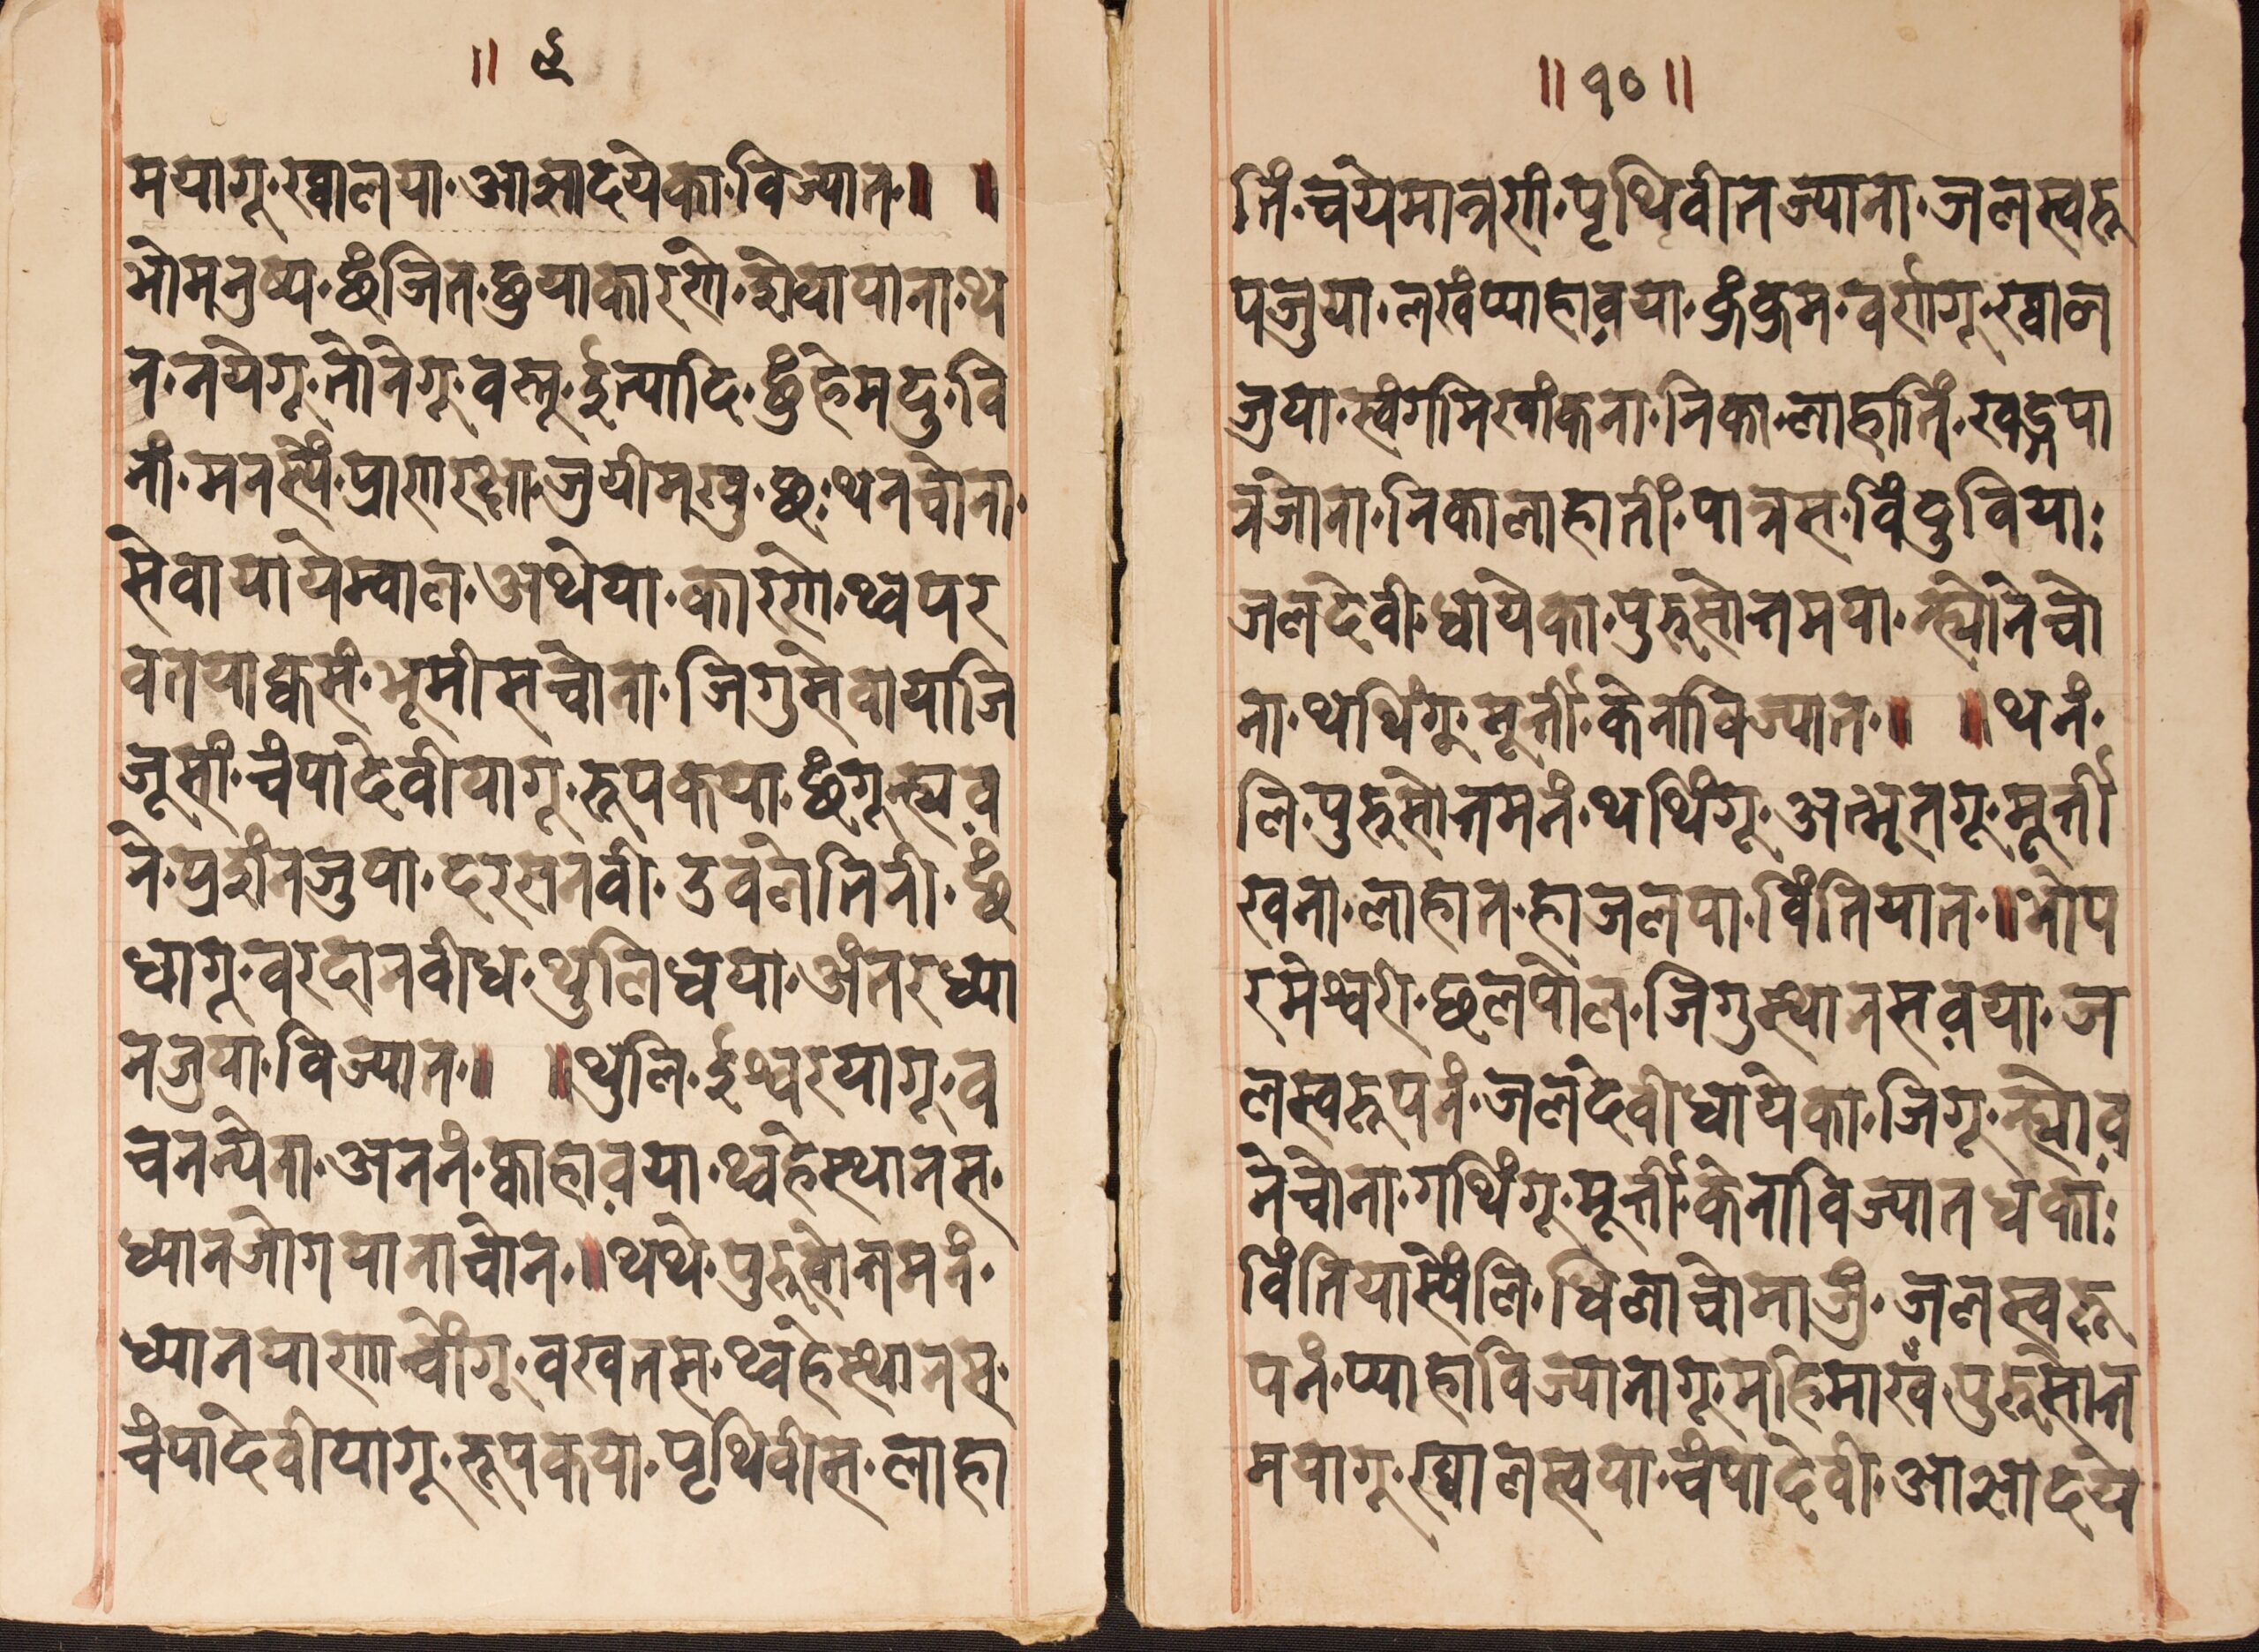 ॥ ९
मयागू·ख्वालया·आज्ञादयेका·विज्यात·॥ ॥
भोमनुष्य·छंजित·छुयाकारणे·द्रोयायाना·थ
न·नयेगू·तोनेगू·वस्तू·ईत्यादि·छुंहेमदु·वि
नां·मनस्यें·प्राणरक्षा·जुयीमखु·छ·थनचोना·
सेवायायेम्वाल·अथेया·कारणे·थ्वपर
वतयाक्वसं·भूमीसचोना·जिगुसेवायाजि
जूसां·चंपादेवीयागू·रूपकया·छंगून्ह्यव
ने·प्रशंनजुया·दरसनवी·उवलेतिनी·छं
धागू·वरदानवीध·थुलिधया·अंतरध्या
नजुया·विज्यात·॥ ॥थुलि·ईश्वरयागू·व
चनन्येना·अननं·क्वाहावया·थ्वहेस्थानस·
ध्यानजोगयानाचोन·॥थथे·पुरुसोत्तमनं·
ध्यानयाणाच्वोंगू·वखतस·थ्वहेस्थानस·
चंपादेवीयागू·रूपकया·पृथिवीस·लाहा
॥ १० ॥
तिं·च्वयेमात्रणं·पृथिवीतज्याना·जलस्वरू
पजुया·लखंप्याहावया·कुंकुम·वर्णागू·ख्वाल
जुया·स्वंगमिखांकना·निका·लाहातिं·खड्गपा
त्रजोना·निकालाहातीं·पात्रस·विंदुविया:
जलदेवी·धायेका·पुरुसोत्तमया·न्ह्योनेचो
ना·थथिंगु·मूर्ती·केनाविज्यात·॥ ॥थनं·
लि·पुरुसोत्तमनं·थथिंगू·अत्भूतगू·मूर्ती
खना·लाहात·हाजलपा·विंतियात·॥भोप
रमेश्वरी·छलपोल·जिगुस्थानसवया·ज
लस्वरूपनं·जलदेवीधायेका·जिगू·न्ह्योव
नेचोना·गथिंगू·मूर्ती·केनाविज्यातधका:
विंतियास्येंलि·धिलाचोमाजुं·जलस्वरू
पनं·प्याहाविज्यानागू·महिमाखँ·पुरुसोत्त
मयागू·ख्वालस्वया·चंपादेवी·आज्ञादये